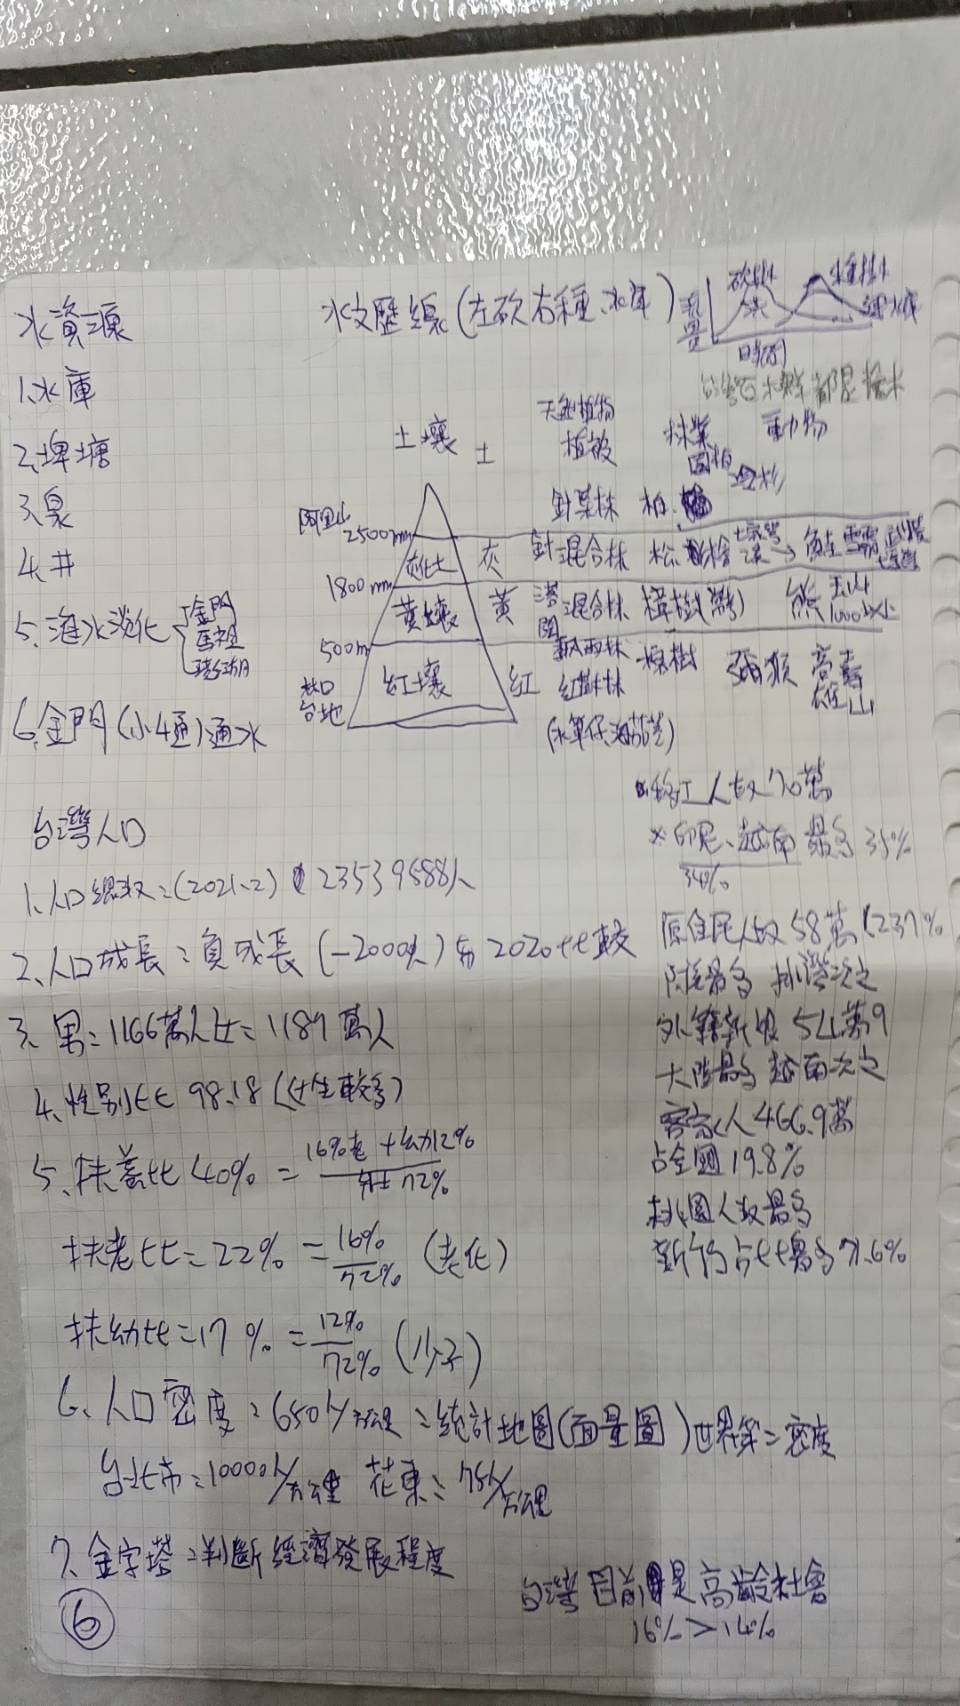 水資源
水文歷線(左砍右種、水庫)
流量
砍樹
種樹
水庫
時間
1.水庫
2.埤塘
3.泉
4.井
5.海水淡化
金門
馬祖
澎湖
6.金門(小4通)通水
土壤 土 天然植物 植被 林業 動物
阿里山
2500m
針葉林 柏
灰化土 灰 針混合林 松
1800mm
黃壤 黃 闊混合林 樟樹 熊 玉山
500m
紅壤 紅 紅樹林 獼猴 高雄 壽山
林口台地
(水筆仔、海茄苳)
台灣人口
1.人口總數:(2021.2) 23539588人
2.人口成長:負成長(-2000人)與2020比較
3.男:1166萬人女=1187萬人
4.性別比 98.18(女生較多)
5.扶養比40% = 16%老+幼12% / 72%
扶老比=22% = 16% / 72% (老化)
扶幼比=17% = 12% / 72% (少子)
6.人口密度:650人/方公里 =統計地圖(面量圖)世界第二密度
台北市:10000人/方公里 花東:75人/方公里
7.金字塔:判斷經濟發展程度
6
移工人數70萬
*印尼、越南最多35%
34%
原住民人數58萬(2.37%
阿美最多 排灣次之
外籍新娘
大陸最多 越南次之
客家人466.9萬
占全國19.8%
桃園人數最多
新竹占比最多71.6%
台灣目前是高齡社會
16%>14%